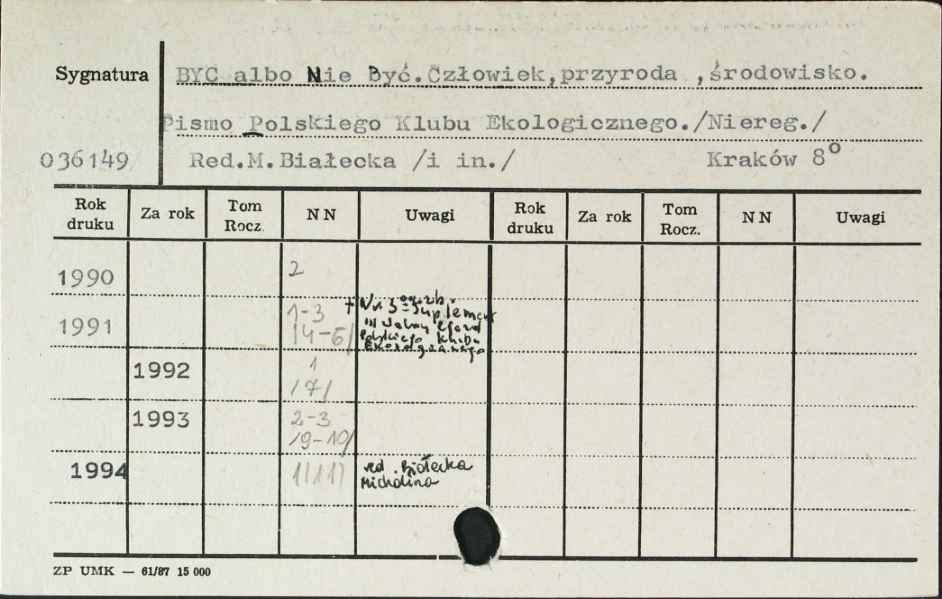 Sygnatura BYC albo Nie Być.Człowiek,przyroda ,środowisko.
Pismo Polskiego Klubu Ekologicznego./Niereg./
036149 Red.M.Białecka /i in./ Kraków 8º
Rok druku Za rok Tom Rocz. N N Uwagi Rok druku Za rok Tom Rocz. N N Uwagi
1990 2
1991 1-3 + Nr 3 = Suplement
/4-6/ III Walny Zjazd
Polskiego Klubu
Ekologicznego
1992 1
/7/
1993 2-3
/9-10/
1994 red. Białecka
Michalina
ZP UMK — 61/87 15 000